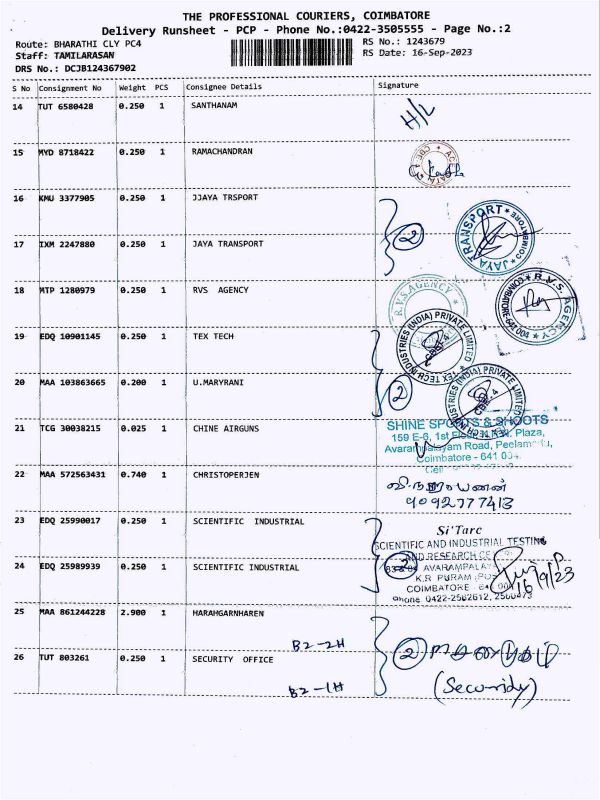 THE PROFESSIONAL COURIERS, COIMBATORE
Delivery Runsheet - PCP - Phone No.:0422-3505555 - Page No.:2
Route: BHARATHI CLY PC4 RS No.: 1243679
Staff: TAMILARASAN RS Date: 16-Sep-2023
DRS No.: DCJB124367902
S No Consignment No Weight PCS Consignee Details Signature
14 TUT 6580428 0.250 1 SANTHANAM H/L
15 MYD 8718422 0.250 1 RAMACHANDRAN
16 KMU 3377905 0.250 1 JJAYA TRSPORT
2 JAYA TRANSPORT COIMBATORE
17 IXM 2247880 0.250 1 JAYA TRANSPORT
18 MTP 1280979 0.250 1 RVS AGENCY
R.V.S AGENCY
R.V.S. AGENCY COIMBATORE-641 004
19 EDQ 10901145 0.250 1 TEX TECH
TEX TECH INDUSTRIES (INDIA) PRIVATE LIMITED CBE-4
20 MAA 103863665 0.200 1 U.MARYRANI
2 TEX TECH INDUSTRIES (INDIA) PRIVATE LIMITED CBE-4
21 TCG 30038215 0.025 1 CHINE AIRGUNS
SHINE SPORTS & SHOOTS
159 E-6, 1st Floor, Plaza,
Avarampalayam Road,
Coimbatore - 641 004.
Cell
22 MAA 572563431 0.740 1 CHRISTOPERJEN
9092777413
23 EDQ 25990017 0.250 1 SCIENTIFIC INDUSTRIAL
Si'Tarc
SCIENTIFIC AND INDUSTRIAL TESTING
AND RESEARCH
24 EDQ 25989939 0.250 1 SCIENTIFIC INDUSTRIAL
2 AVARAMPALAY
K.R PURAM
COIMBATORE
phone 0422-2562612,
16/9/23
25 MAA 861244228 2.900 1 HARAHGARNHAREN
B2-2H
26 TUT 803261 0.250 1 SECURITY OFFICE
2
(Security)
B2-1H